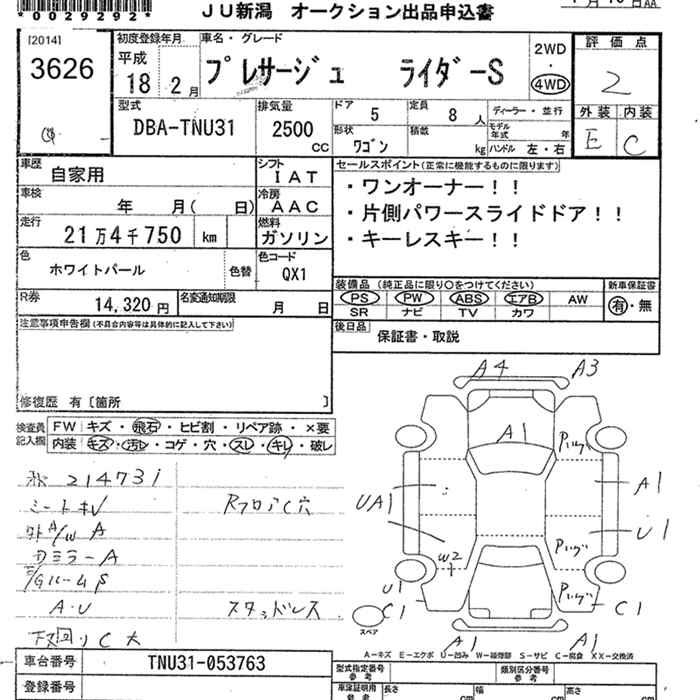 *0029292*
JU新潟 オークション出品申込書
[2014]
3626
初度登録年月
平成
18 2 月
車名・グレード
プレサージュ ライダーS
2WD
・
4WD
評価点
2
外装 内装
E C
型式
DBA-TNU31
排気量
2500
CC
ドア 5
定員 8 人
ディーラー・並行
形状 ワゴン
積載 kg
モデル年式 年
ハンドル 左・右
車歴 自家用
シフト IAT
車検 年 月( 日)
冷房 AAC
走行 21万4千750 km
燃料 ガソリン
色 ホワイトパール 色替
色コード QX1
R券 14,320円
名変通知期限 月 日
セールスポイント(正常に機能するものに限ります)
・ワンオーナー!!
・片側パワースライドドア!!
・キーレスキー!!
装備品 (純正品に限り○をつけてください) 新車保証書
PS PW ABS エアB AW 有・無
SR ナビ TV カワ
後日品 保証書・取説
注意事項申告欄(不具合内容等は具体的に記入して下さい)
修復歴 有 [箇所 ]
検査員記入欄
FW キズ・飛石・ヒビ割・リペア跡・×要
内装 キズ・汚レ・コゲ・穴・スレ・キレ・破レ
214731
シートキレ
RフロアC穴
外A/W A
ドミラーA
A・U
スタッドレス
下廻リC大
A4 A3
A1
Pいグ
UA1
A1
Pいグ
U1
W2
U1
C1
Pいグ
C1
スペア
A1 A1
A-キズ E-エクボ U-凹み W-補修跡 S-サビ C-腐食 XX-交換済
車台番号 TNU31-053763
登録番号
型式指定番号 参考
類別区分番号 参考
車庫証明用 参考
長さ cm
幅 cm
高さ cm